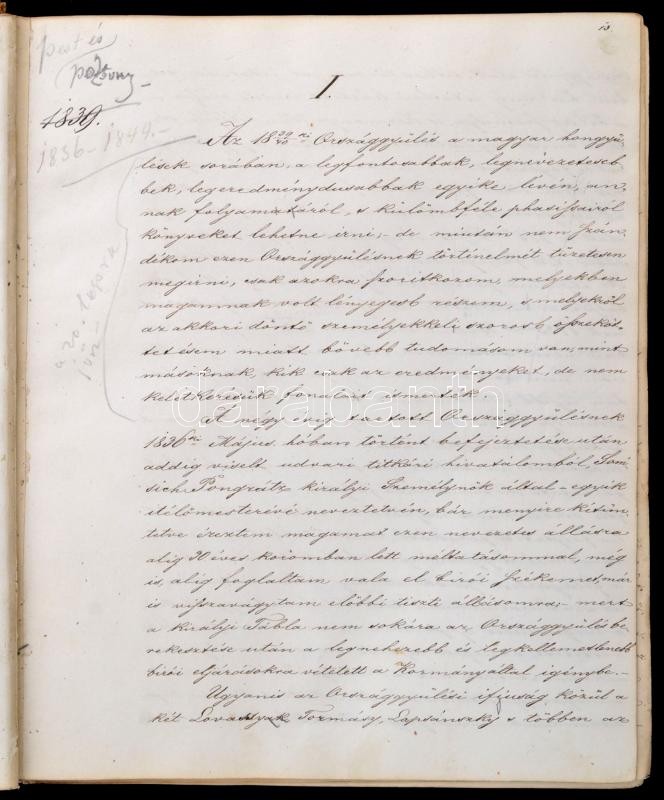 pest és
pozsony
1839.
1836–1844.–
a 20. lapra
jön–
I.
Az 18 39/40 ki Országgyülés a magyar hongyü-
lések sorában, a legfontosabbak, legnevezeteseb-
bek, legeredménydusabbak egyike lévén, an-
nak folyamatáról, s különbféle phasissairól
könyveket lehetne irni,- de miután nem szán-
dékom ezen Országgyülésnek történelmét tüzetesen
megirni, csak azokra szoritkozom, melyekben
magamnak volt lényegesb részem, s melyekről
az akkori döntő személyekkeli szorosb összeköt-
tetésem miatt bővebb tudomásom van, mint
másoknak, kik csak az eredményeket, de nem
keletkezésük fonalait ismerték.
A négy évig tartott Országgyülésnek
1836ki Május hóban történt befejeztetése után
addig viselt udvari titkári hivatalomból, Som-
sich Pongrátz királyi Személynök által – egyik
itélőmesterévé neveztetvén, bár menyire kitün-
tetve éreztem magamat ezen nevezetes állásra
alig 30 éves koromban lett méltatásommal, még
is, alig foglaltam vala el birói székemet, már
is visszavágytam előbbi tiszti állásomra;- mert
a királyi Tábla nem sokára az Országgyülés be-
rekesztése után a legnehezebb és legkellemetlenebb
birói eljárásokra vétetett a Kormányáltal igénybe.–
Ugyanis az Országgyülési ifjuság közül a
két Lovassyak Tormásy, Lapsánszky s többen az
darabanth